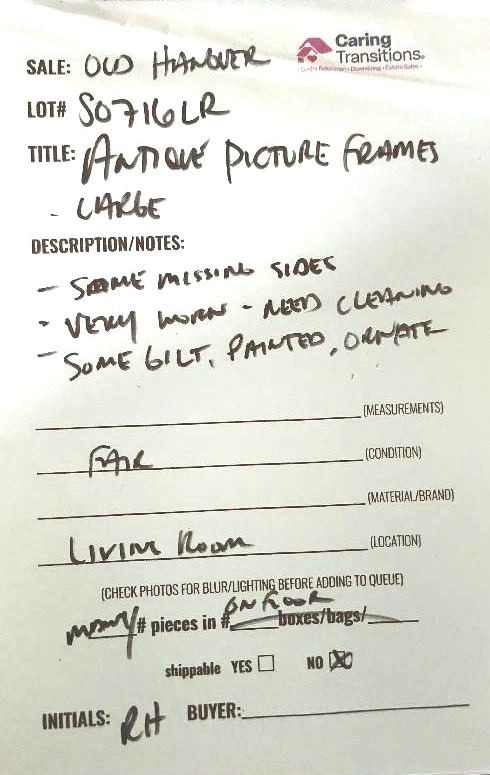 Caring
Transitions®
SALE: OLD HANOVER
LOT# S0716LR
TITLE: ANTIQUE PICTURE FRAMES
- LARGE
DESCRIPTION/NOTES:
- SOME MISSING SIDES
- VERY WORN - NEED CLEANING
- SOME GILT, PAINTED, ORNATE
(MEASUREMENTS)
FAIR (CONDITION)
(MATERIAL/BRAND)
LIVING ROOM (LOCATION)
(CHECK PHOTOS FOR BLUR/LIGHTING BEFORE ADDING TO QUEUE)
ON FLOOR
MANY # pieces in # boxes/bags/
shippable YES NO
INITIALS: RH BUYER: